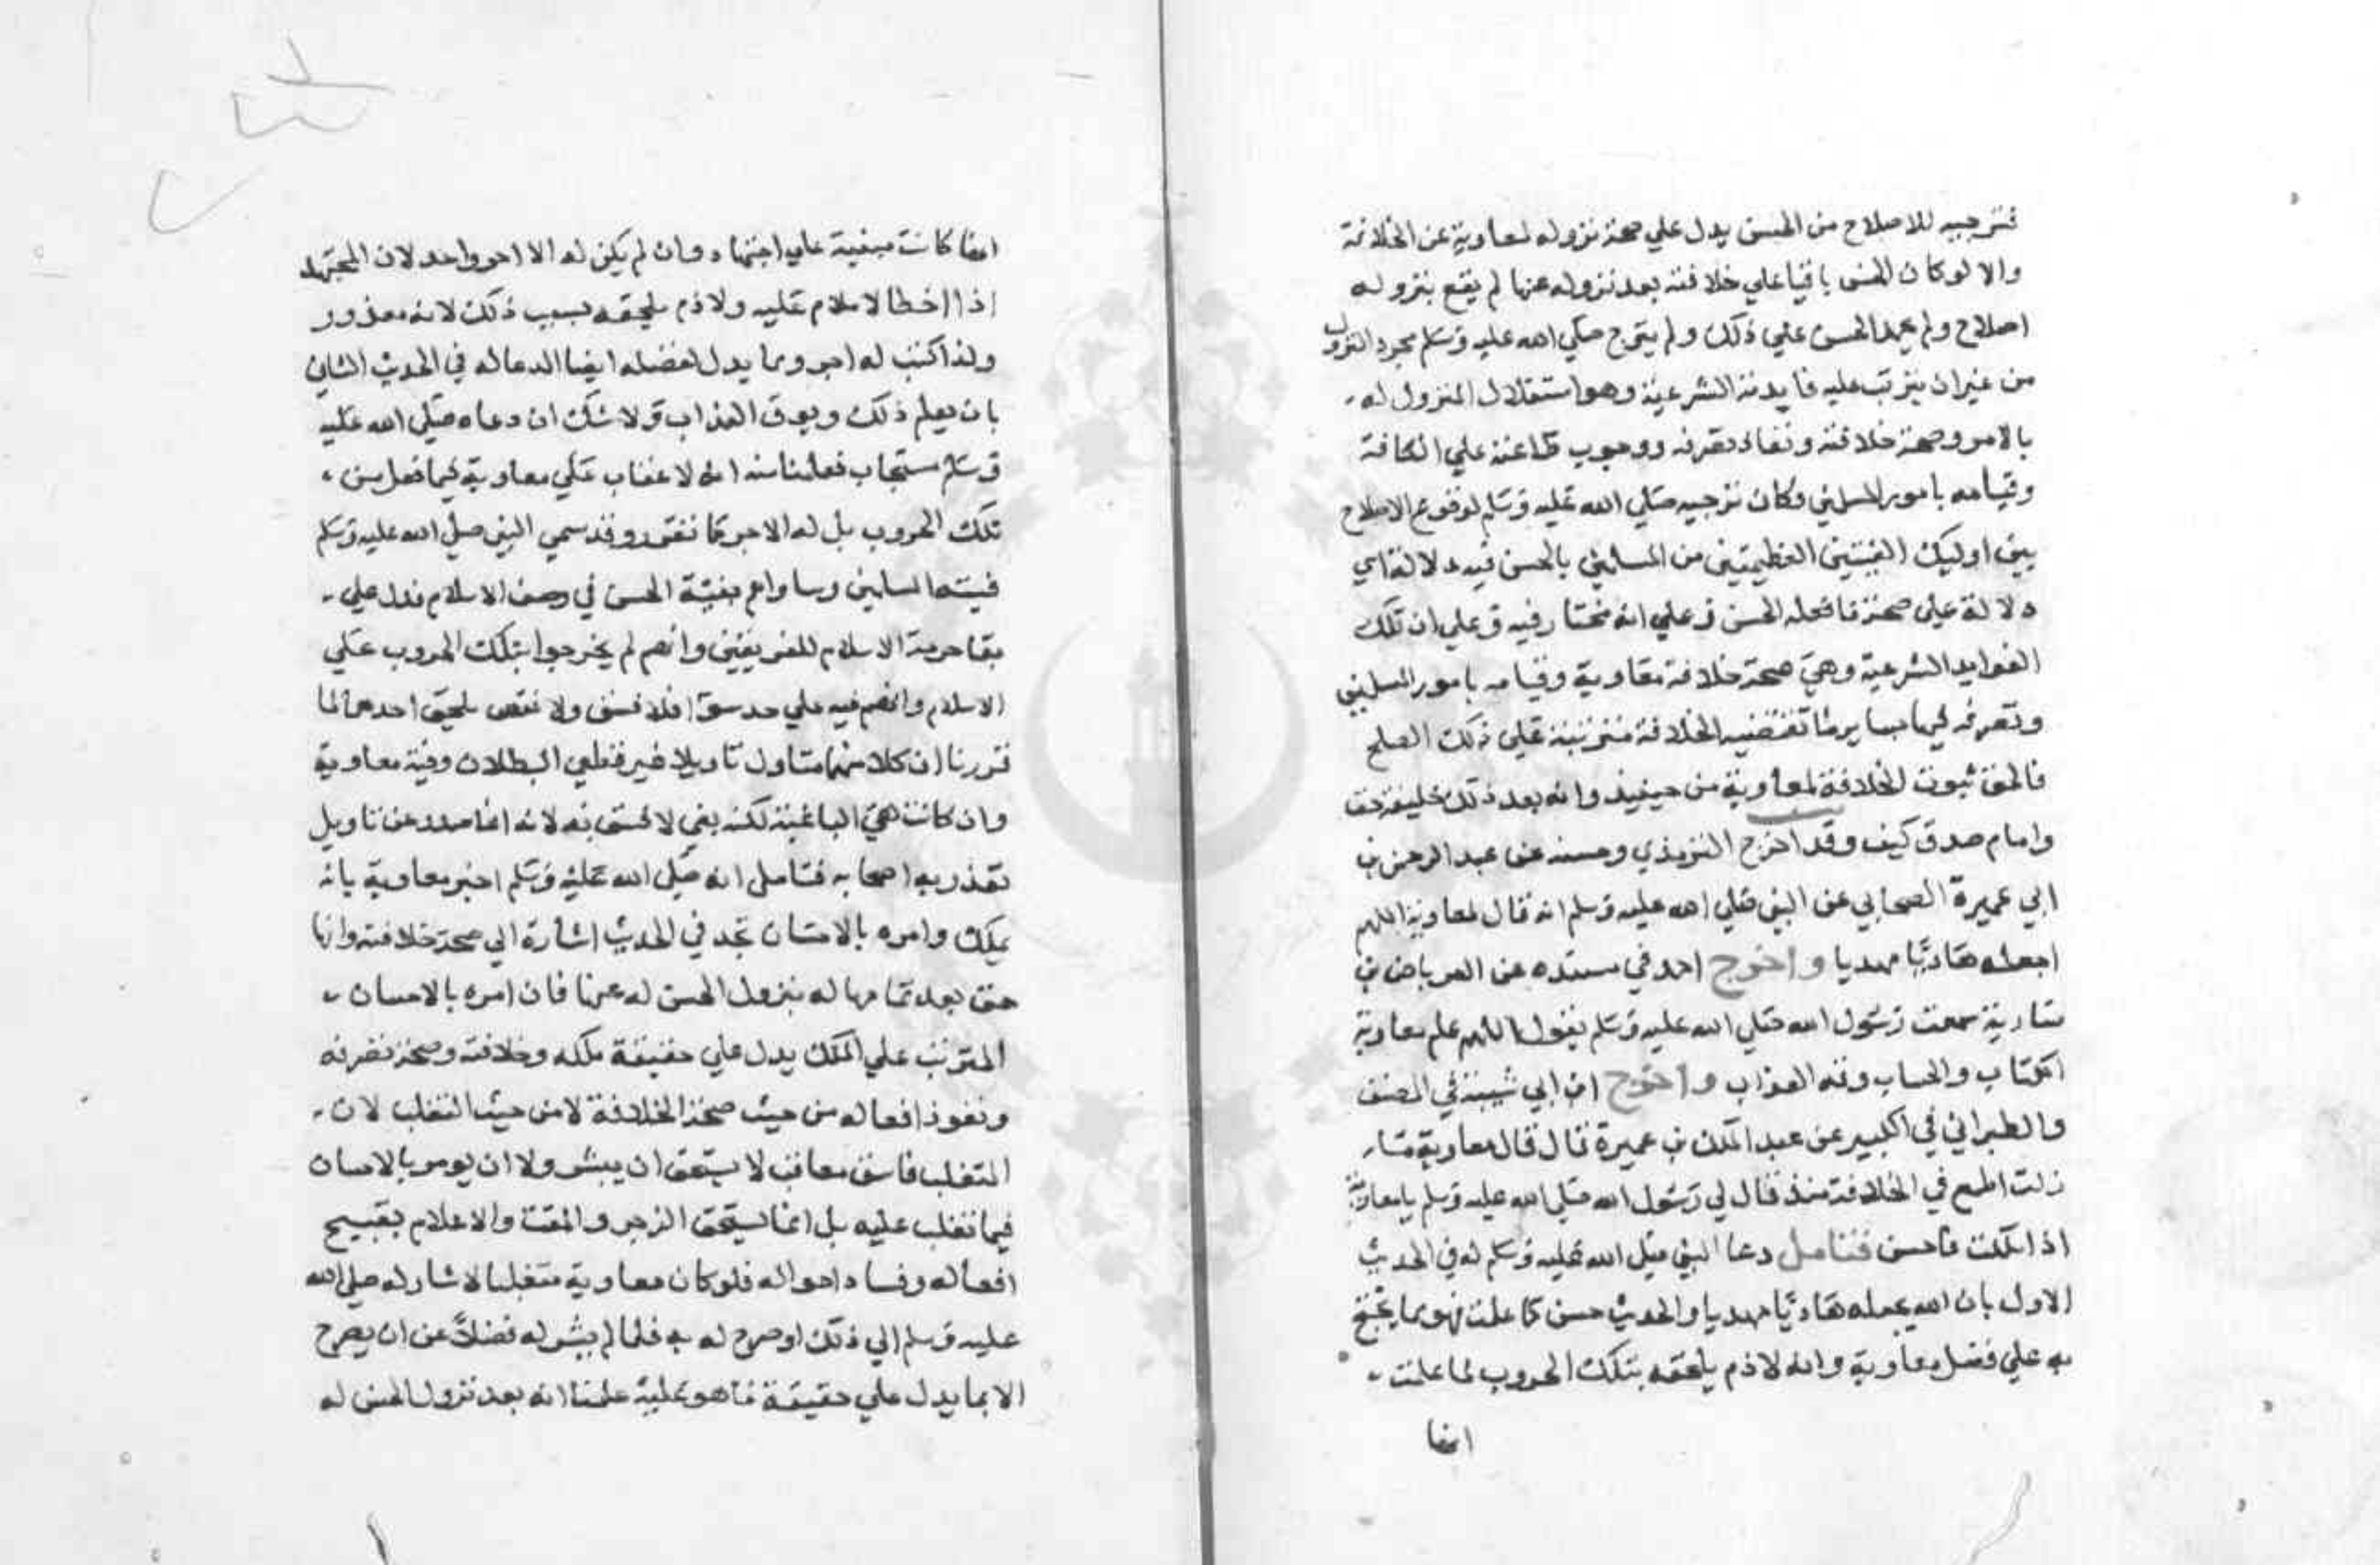 فترجيه للاصلاح من الحسن يدل علي صحة نزوله لمعاوية عن الخلافة
والا لو كان الحسن باقيا علي خلافته بعد نزوله عنها لم يقع بنزوله
اصلاح ولم يحمد الحسن علي ذلك ولم يترج صلي الله عليه وسلم مجرد النزول
من غير ان يترتب عليه فايدته الشرعية وهو استقلال المنزول له
بالامر وصحة خلافته ونفاذ تصرفه ووجوب طاعته علي الكافة
وقيامه بامور المسلمين فكان ترجيه صلي الله عليه وسلم لوقوع الاصلاح
بين اوليك الفيتين العظيمتين من المسلمين بالحسن فيه دلالة اي
دلالة علي صحة ما فعله الحسن وعلي انه مختار فيه وعلي ان تلك
الفوايد الشرعية وهي صحة خلافة معاوية وقيامه بامور المسلمين
وتصرفه فيها بساير ما تقتضيه الخلافة مترتبة علي ذلك الصلح
فالحق ثبوت الخلافة لمعاوية من حينيذ وانه بعد ذلك خليفة حق
وامام صدق كيف وقد اخرج الترمذي وحسنه عن عبد الرحمن بن
ابي عميرة الصحابي عن النبي صلي الله عليه وسلم انه قال لمعاوية اللهم
اجعله هاديا مهديا واخرج احمد في مسنده عن العرباض بن
سارية سمعت رسول الله صلي الله عليه وسلم يقول اللهم علم معاوية
الكتاب والحساب وقه العذاب واخرج ابن ابي شيبة في المصنف
والطبراني في الكبير عن عبد الملك بن عميرة قال قال معاوية ما
زلت اطمع في الخلافة منذ قال لي رسول الله صلي الله عليه وسلم يا معاوية
اذا ملكت فاحسن فتامل دعا النبي صلي الله عليه وسلم له في الحديث
الاول بان الله يجعله هاديا مهديا والحديث حسن كما علمت فهو مما يحتج
به علي فضل معاوية وانه لا ذم يلحقه بتلك الحروب لما علمت
انها
انها كانت مبنية علي اجتهاد وان لم يكن له الا اجر واحد لان المجتهد
اذا اخطا لا ملام عليه ولا ذم يلحقه بسبب ذلك لانه معذور
ولذا كتب له اجر ومما يدل لفضله ايضا الدعا له في الحديث الثاني
بان يعلم ذلك ويوق العذاب ولا شك ان دعاه صلي الله عليه
وسلم مستجاب فعلمنا منه انه لا عقاب علي معاوية فيما فعل من
تلك الحروب بل له الاجر كما تقرر وقد سمي النبي صلي الله عليه وسلم
فيته المسلمين وساواهم بفيئة الحسن في وصف الاسلام فدل علي
بقا حرمة الاسلام للفريقين وانهم لم يخرجوا بتلك الحروب علي
الاسلام وانهم فيه علي حد سوا فلا فسق ولا نقص يلحق احدهما لما
قررنا ان كلا منهما متاول تاويلا غير قطعي البطلان وفية معاوية
وان كانت هي الباغية لكنه بغي لا فسق به لانه انما صدر عن تاويل
تعذر به اصحابه فتامل انه صلي الله عليه وسلم اخبر معاوية بانه
يملك وامره بالاحسان تجد في الحديث اشارة الي صحة خلافته وانها
حق بعد تمامها له بنزول الحسن له عنها فان امره بالاحسان
المترتب علي الملك يدل علي حقيقة ملكه وخلافته وصحة تصرفه
ونفوذ افعاله من حيث صحة الخلافة لا من حيث التغلب لان
المتغلب فاسق معاقب لا يستحق ان يبشر ولا ان يومر بالاحسان
فيما تغلب عليه بل انما يستحق الزجر والمقت والاعلام بقبيح
افعاله وفساد احواله فلو كان معاوية متغلبا لاشار له صلي الله
عليه وسلم الي ذلك او صرح له به فلما لم يشر له فضلا عن ان يصرح
الا بما يدل علي حقيقة ما هو عليه علمنا انه بعد نزول الحسن له